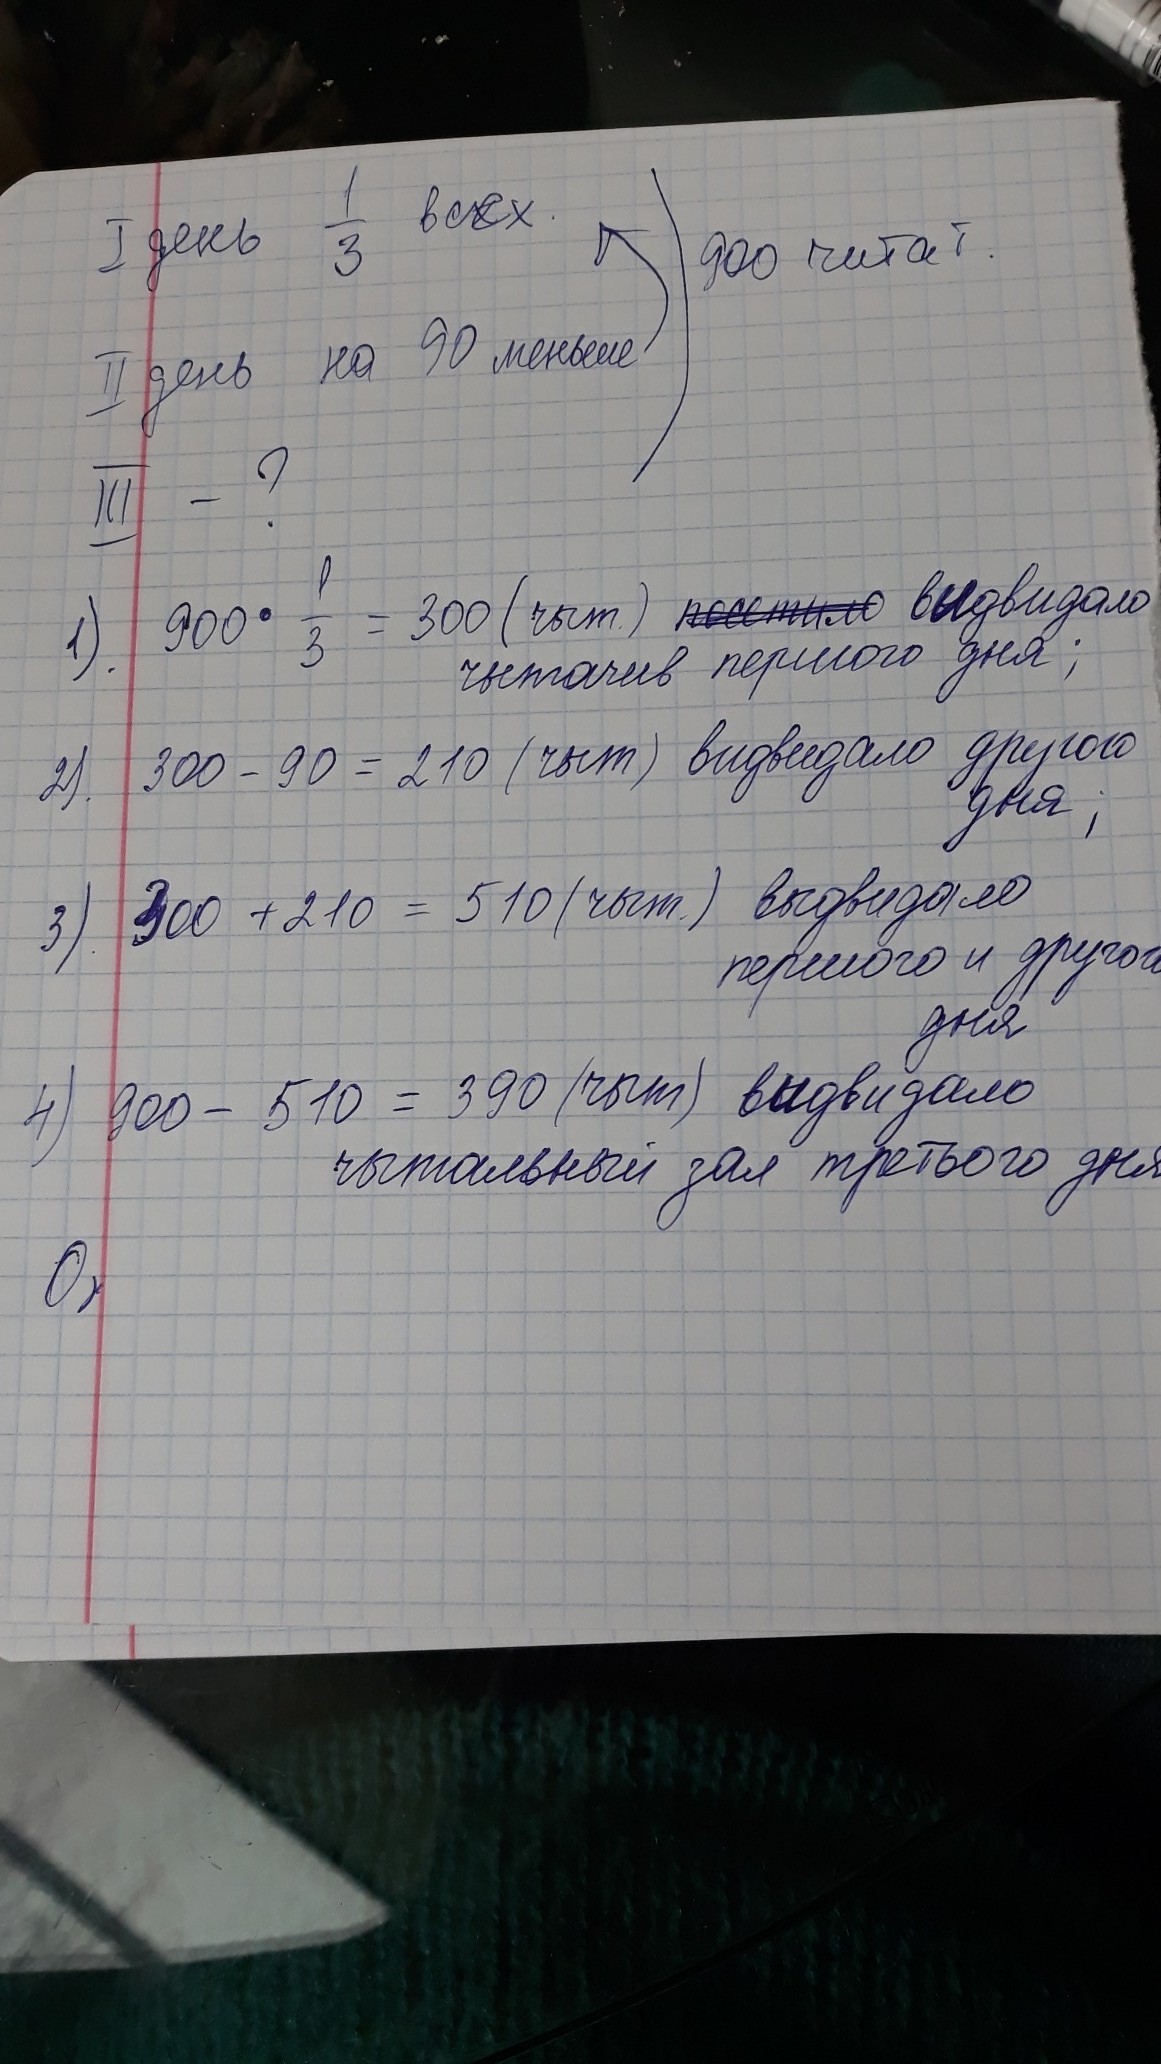 I день 1/3 всех.
900 читат.
II день на 90 меньше
III - ?
1). 900 · 1/3 = 300 (чыт.) выдвидало
чытачив першого дня;
2). 300 - 90 = 210 (чыт) видвидало другого
дня;
3). 300 + 210 = 510 (чыт.) выдвидало
першого и другого
дня
4) 900 - 510 = 390 (чыт) выдвидало
чытальный зал третього дня